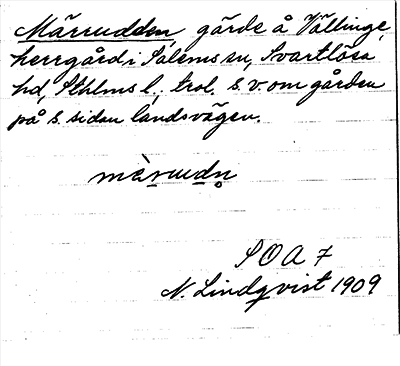 Märrudden, gärde å Vällinge
herrgård, i Salems sn, Svartlösa
hd, Sthlms l., trol. s.v. om gården
på s. sidan landsvägen.
mæ̀rudn̥
SOA 7
N. Lindqvist 1909